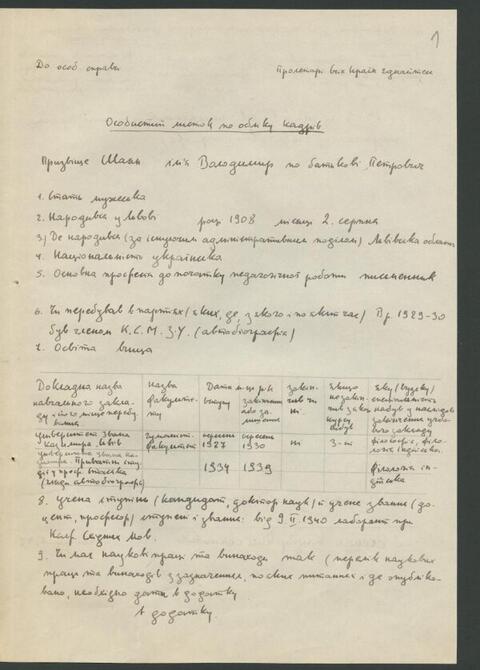 1
До особ. справи
Пролетарі всіх країн єднайтеся
Особистий листок по обліку кадрів
Призвище Шаян ім'я Володимир по батькові Петрович
1. Стать мужеська
2. Народився у Львові році 1908 місяці 2. серпня
3) Де народився (за існуючим адміністративним поділом) Львівська область
4. Національність українська
5. Основна професія до початку педагогічної роботи письменник
6. Чи перебував в партіях (яких, де, з якого і по який час) В р. 1929-30
був членом К.С.М.З.У. (автобіографія)
7. Освіта вища
Докладна назва навчального закладу і його місце перебування
Назва факультету
Дата вступу закінчення або залишення
закінчив чи ні
Якщо не закінчив з якого курсу вибув
Яку спеціяльність набув у наслідок закінчення учбового закладу
університет Львів
гуманіст. факультет
вересень 1927
вересень 1930
ні
3-ій
філософія, філологія індійська.
1934
1939
філологія індійська
8. учена ступінь (кандидат, доктор наук) і учене звання (доцент, професор) ступені і звання: від 9. II. 1940 лаборант при
Каф. Східних мов.
9. Чи має наукові праці та винаходи так (перелік наукових
праць та винаходів з зазначенням, по яких питаннях і де опубліковано, необхідно дати в додатку
в додатку.